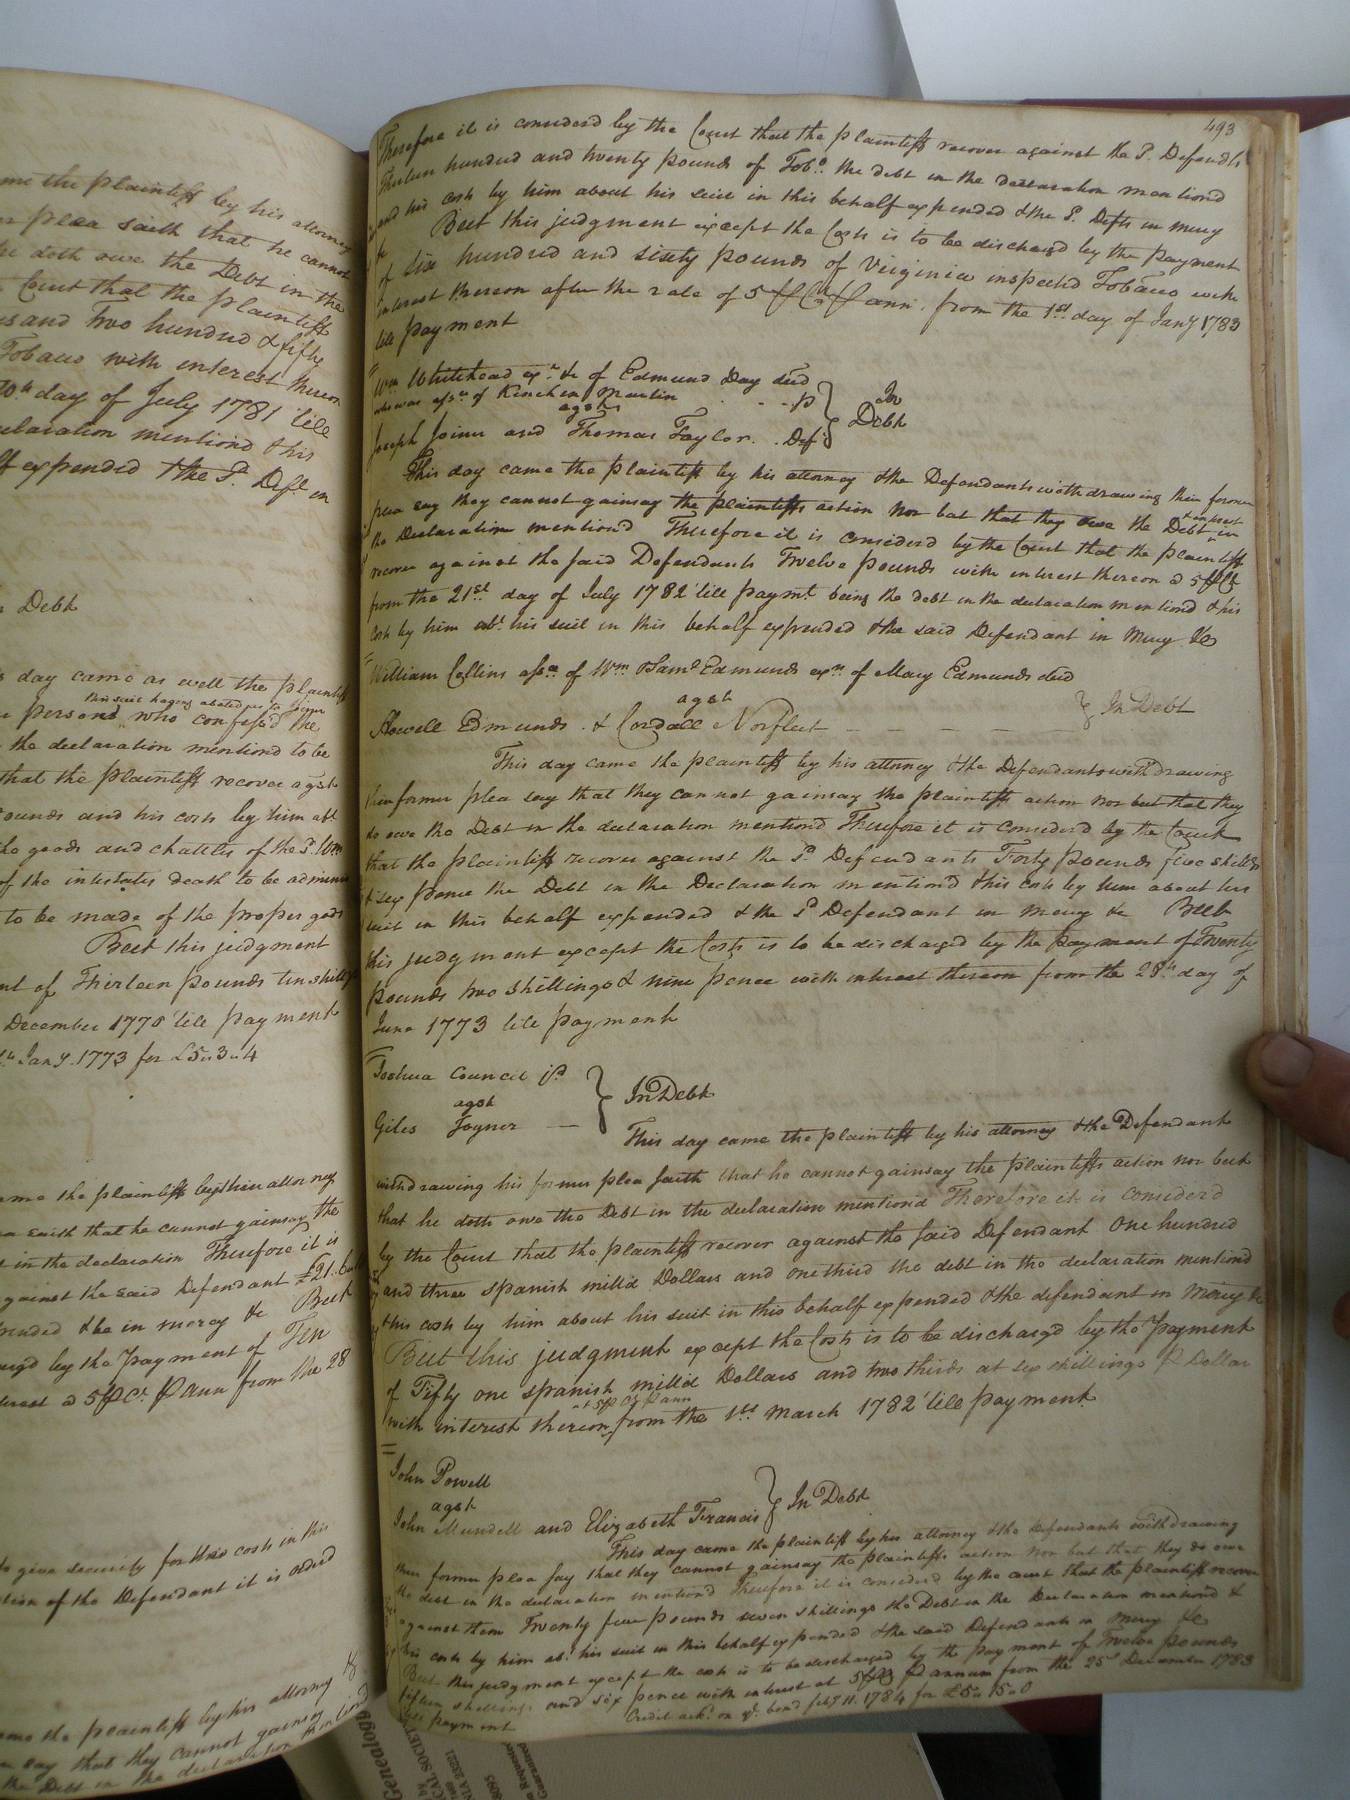 me the plaintiff by his attorney
plea saith that he cannot
doth owe the Debt in the
Court that the plaintiff
sand two hundred & fifty
Tobacco with interest thereon
day of July 1781 'till
declaration mentiond & his
expended & the Sd. Deft in
Debt
day came as well the plaintiff
this suit having abated
person who confess'd the
the declaration mentiond to be
that the plaintiff recover agst
pounds and his costs by him abt
the goods and chattels of the Sd. Wm
of the intestates death to be
to be made of the proper goods
But this judgment
of Thirteen pounds ten shillings
December 1770 'till payment
Jany. 1773 for £5..3..4
the plaintiffs by their attorney
saith that he cannot gainsay the
in the declaration Therefore it is
against the said Defendant £21.
& be in mercy &c But
by the payment of Ten
interest @ 5 P Ct. P Ann from the 28
to give security for this costs in this
of the Defendant it is orderd
the plaintiff by his attorney &
say that they cannot gainsay
the Debt in the declaration mentiond
493
Therefore it is considerd by the Court that the plaintiff recover against the Sd. Defendts
Thirteen hundred and twenty pounds of Tobo. the debt in the declaration mentiond
and his costs by him about his suit in this behalf expended & the Sd. Defts in mercy
&c But this judgment except the Costs is to be discharged by the payment
of Six hundred and sixty pounds of Virginia inspected Tobacco with
interest thereon after the rate of 5 P Ct P ann. from the 1st day of Jany 1783
till payment
Wm Whitehead exr. &c of Edmund Day decd
who was assee of Kinchen Martin - - P } In
agst
Joseph Joiner and Thomas Taylor. . Defs } Debt
This day came the plaintiff by his attorney & the Defendants withdrawing their former
plea say they cannot gainsay the plaintiffs action nor but that they owe the Debt in
the Declaration mentiond Therefore it is considerd by the Court that the plaintiff
recover against the said Defendants Twelve pounds with interest thereon @ 5 P Ct
from the 21st day of July 1782 'till paymt. being the debt in the declaration mentiond & his
Costs by him abt. his suit in this behalf expended & the said Defendant in Mercy &c
William Collins assee of Wm & Saml Edmunds exrs of Mary Edmunds decd
agst } In Debt
Howell Edmunds . & Cordall Norfleet - - - -
This day came the plaintiff by his attorney & the Defendants withdrawing
their former plea say that they cannot gainsay the plaintiffs action nor but that they
do owe the Debt in the declaration mentiond Therefore it is considerd by the Court
that the plaintiff recover against the Sd Defendants Forty pounds five shillings
& six pence the Debt in the Declaration mention'd & his costs by him about his
suit in this behalf expended & the Sd Defendant in mercy &c But
this judgment except the Costs is to be discharged by the payment of Twenty
pounds two shillings & nine pence with interest thereon from the 28th day of
June 1773 till payment
Joshua Council jr.
agst } In Debt
Giles Joyner —
This day came the plaintiff by his attorney & the Defendant
withdrawing his former plea saith that he cannot gainsay the plaintiffs action nor but
that he doth owe the Debt in the declaration mentiond Therefore it is considerd
by the Court that the plaintiff recover against the said Defendant One hundred
and three spanish mill'd Dollars and one third the debt in the declaration mentiond
& his costs by him about his suit in this behalf expended & the defendant in Mercy &c
But this judgment except the Costs is to be discharg'd by the Payment
of Fifty one spanish mill'd Dollars and two thirds at six shillings P Dollar
at 5 P Ct P ann
with interest thereon from the 1st March 1782 'till payment
John Powell
agst } In Debt
John Mundell and Elizabeth Francis
This day came the plaintiff by his attorney & the Defendants withdrawing
their former plea say that they cannot gainsay the plaintiffs action nor but that they do owe
the debt in the declaration mentiond Therefore it is considerd by the court that the plaintiff recover
against them Twenty five pounds seven shillings the Debt in the Declaration mentiond &
his costs by him abt. his suit in this behalf expended & the said Defendants in mercy &c
But this judgment except the costs is to be discharged by the payment of Twelve pounds
fifteen shillings and six pence with interest at 5 P Ct P annum from the 25th December 1783
till payment Credit ackd. on ye. bond feby 11. 1784 for £5..15..0
Genealogy
CAL SOCIETY
23221